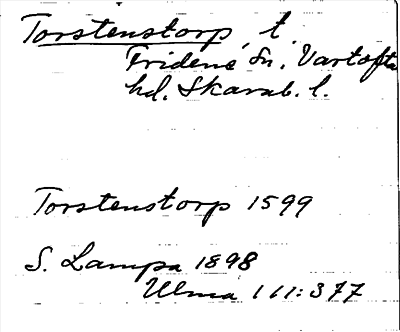 Torstenstorp, t.
Fridene Sn, Vartofta
hd. Skarab. l.
Torstenstorp 1599
S. Lampa 1898
Ulma 111:377